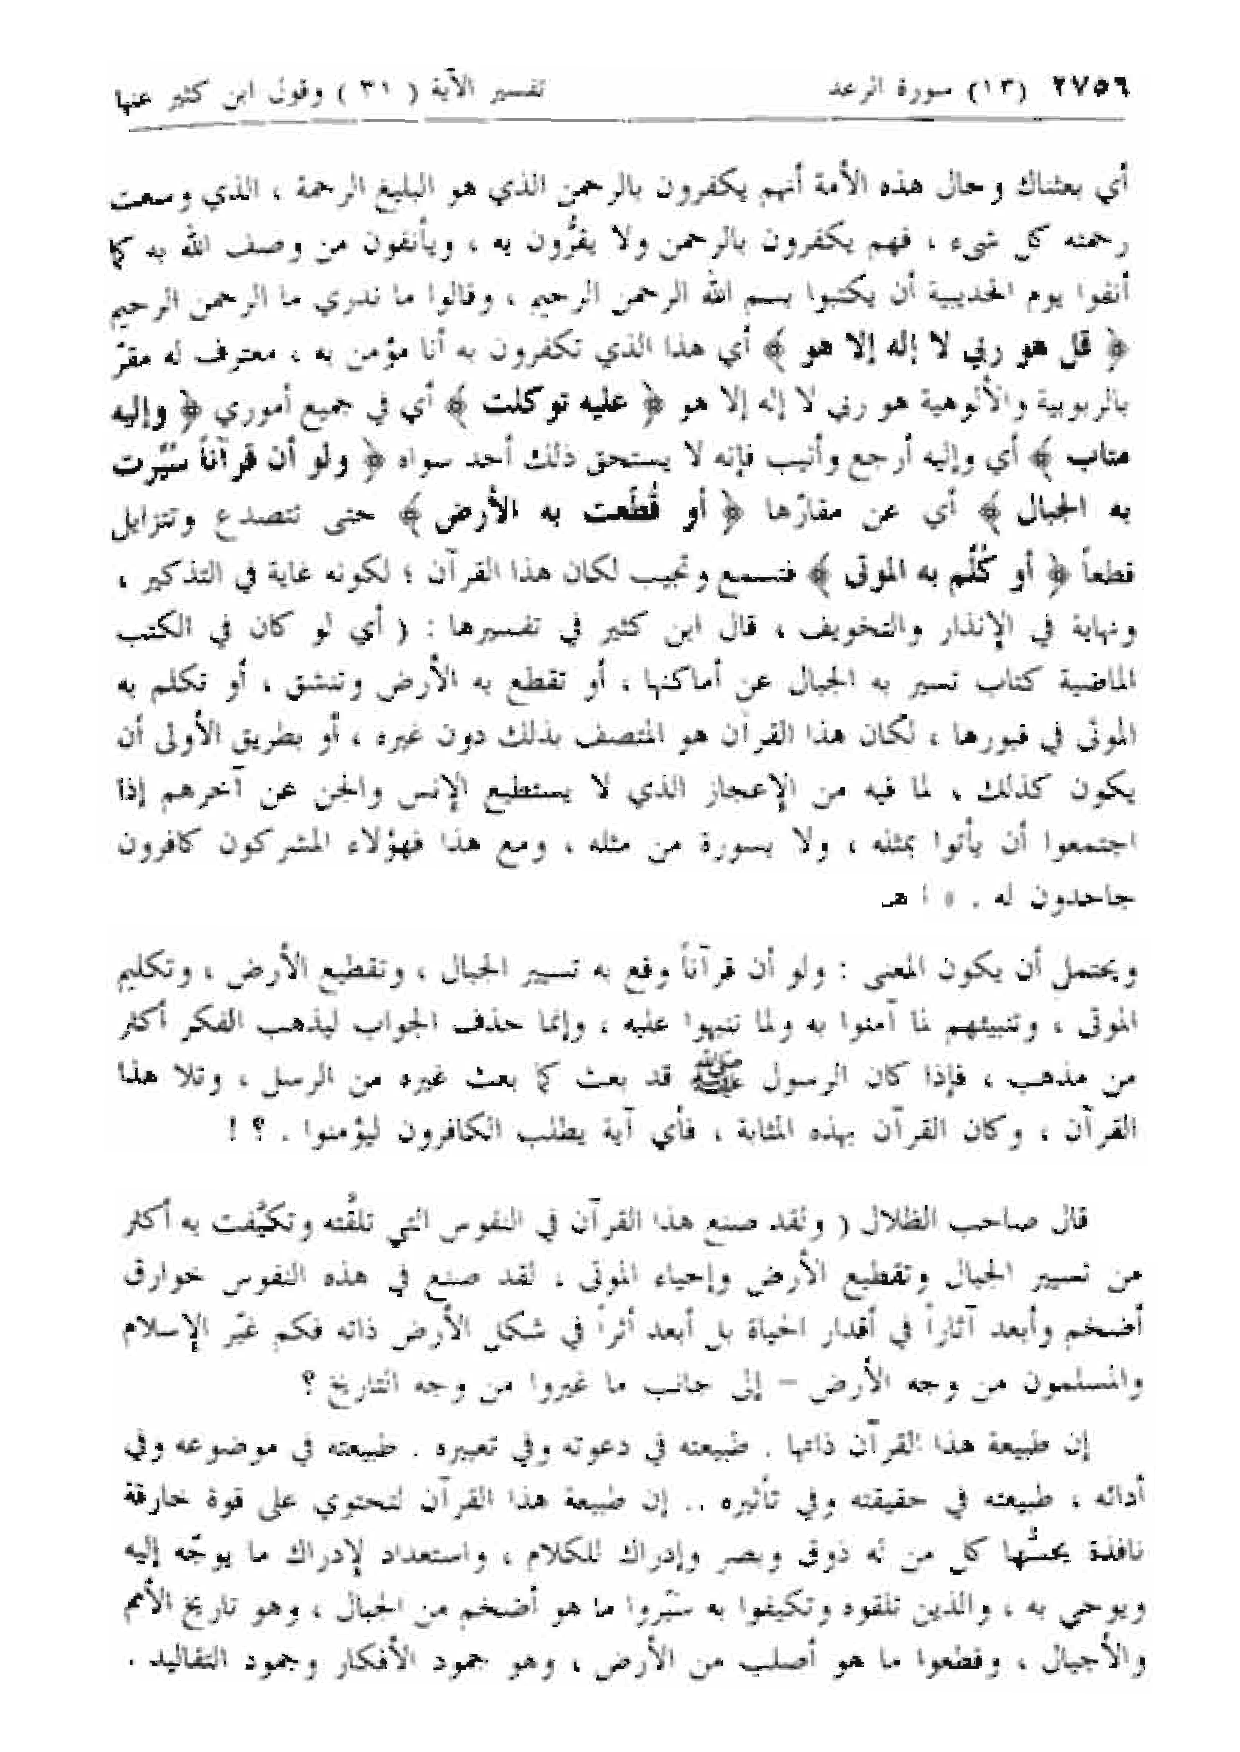 ٢٧٥٦ (١٣) سورة الرعد تفسير الآية ( ٣١ ) وقول ابن كثير عنها
أي بعثناك وحال هذه الأمة أنهم يكفرون بالرحمن الذي هو البليغ الرحمة ، الذي وسعت
رحمته كل شيء ، فهم يكفرون بالرحمن ولا يقرُّون به ، ويأنفون من وصف الله به كما
أنفوا يوم الحديبية أن يكتبوا بسم الله الرحمن الرحيم ، وقالوا ما ندري ما الرحمن الرحيم
﴿ قل هو ربي لا إله إلا هو ﴾ أي هذا الذي تكفرون به أنا مؤمن به ، معترف له مقرّ
بالربوبية والألوهية هو ربي لا إله إلا هو ﴿ عليه توكلت ﴾ أي في جميع أموري ﴿ وإليه
متاب ﴾ أي وإليه أرجع وأنيب فإنه لا يستحق ذلك أحد سواه ﴿ ولو أن قرآناً سُيّرت
به الجبال ﴾ أي عن مقارّها ﴿ أو قُطّعت به الأرض ﴾ حتى تتصدع وتتزايل
قطعاً ﴿ أو كُلّم به الموتى ﴾ فتسمع وتجيب لكان هذا القرآن ؛ لكونه غاية في التذكير ،
ونهاية في الإنذار والتخويف ، قال ابن كثير في تفسيرها : ( أي لو كان في الكتب
الماضية كتاب تسير به الجبال عن أماكنها ، أو تقطع به الأرض وتنشق ، أو تكلم به
الموتى في قبورها ، لكان هذا القرآن هو المتصف بذلك دون غيره ، أو بطريق الأولى أن
يكون كذلك ، لما فيه من الإعجاز الذي لا يستطيع الإنس والجن عن آخرهم إذا
اجتمعوا أن يأتوا بمثله ، ولا بسورة من مثله ، ومع هذا فهؤلاء المشركون كافرون
جاحدون له . » ا هـ
ويحتمل أن يكون المعنى : ولو أن قرآناً وقع به تسيير الجبال ، وتقطيع الأرض ، وتكليم
الموتى ، وتنبيئهم لما آمنوا به ولما تنبهوا عليه ، وإنما حذف الجواب ليذهب الفكر أكثر
من مذهب ، فإذا كان الرسول ﷺ قد بعث كما بعث غيره من الرسل ، وتلا هذا
القرآن ، وكان القرآن بهذه المثابة ، فأي آية يطلب الكافرون ليؤمنوا . ؟ !
قال صاحب الظلال ( ولقد صنع هذا القرآن في النفوس التي تلقَّته وتكيَّفت به أكثر
من تسيير الجبال وتقطيع الأرض وإحياء الموتى . لقد صنع في هذه النفوس خوارق
أضخم وأبعد آثاراً في أقدار الحياة بل أبعد أثراً في شكل الأرض ذاته فكم غيّر الإسلام
والمسلمون من وجه الأرض – إلى جانب ما غيروا من وجه التاريخ ؟
إن طبيعة هذا القرآن ذاتها . طبيعته في دعوته وفي تعبيره . طبيعته في موضوعه وفي
أدائه ، طبيعته في حقيقته وفي تأثيره .. إن طبيعة هذا القرآن لتحتوي على قوة خارقة
نافذة يحسُّها كل من له ذوق وبصر وإدراك للكلام ، واستعداد لإدراك ما يوجّه إليه
ويوحي به ، والذين تلقوه وتكيفوا به سيّروا ما هو أضخم من الجبال ، وهو تاريخ الأمم
والأجيال ، وقطعوا ما هو أصلب من الأرض ، وهو جمود الأفكار وجمود التقاليد .